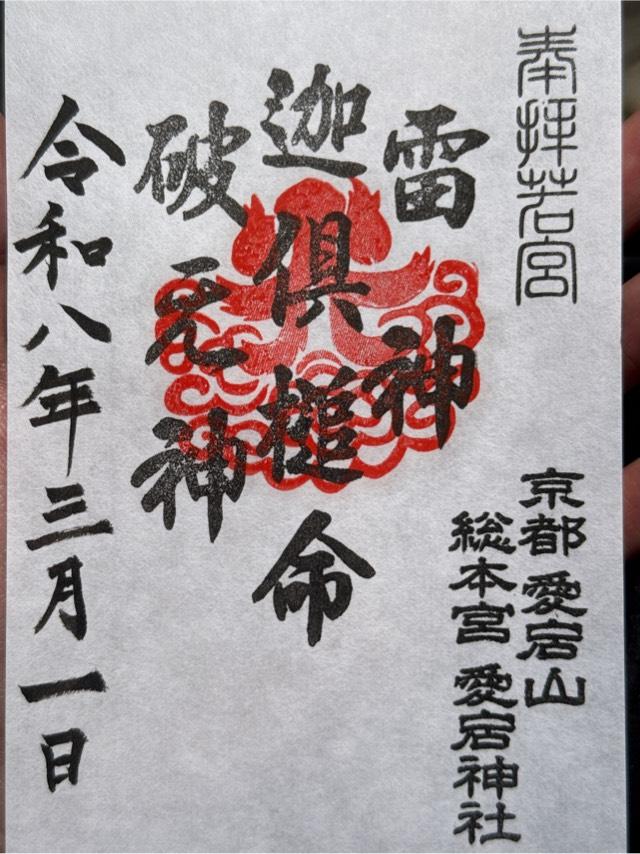 奉拝若宮
京都愛宕山
総本宮 愛宕神社
雷神
迦倶槌命
破无神
令和八年三月一日